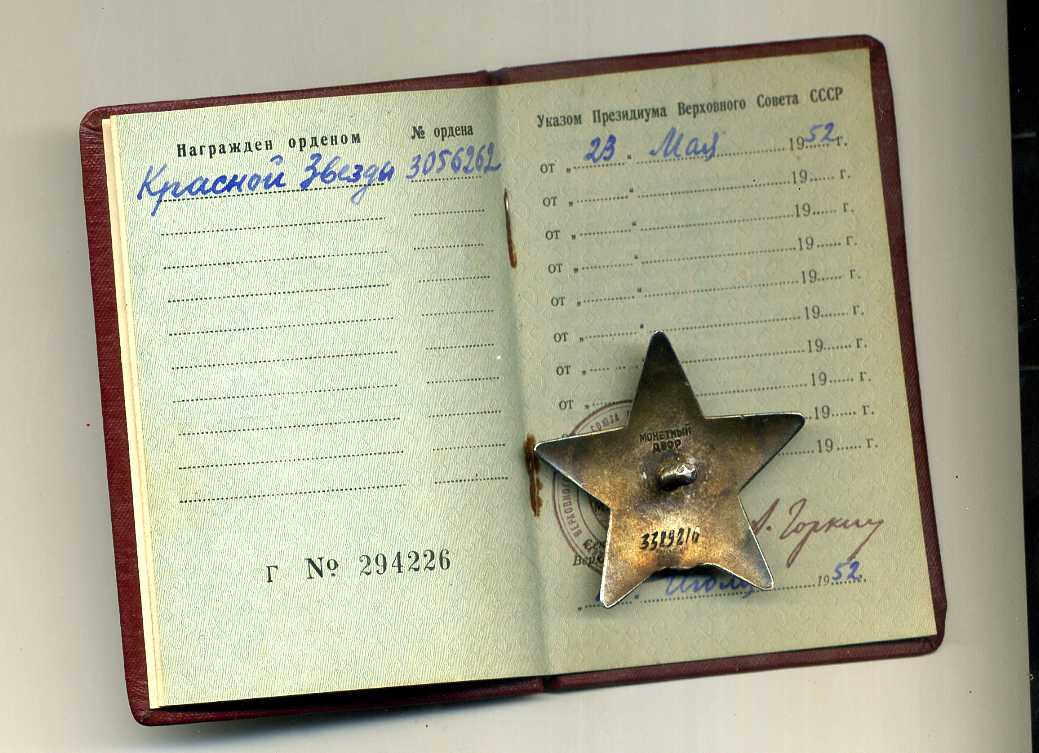 Награжден орденом № ордена
Красной Звезды 3056262
Г № 294226
Указом Президиума Верховного Совета СССР
от „ 23 “ Мая 1952 г.
от „ “ 19 г.
от „ “ 19 г.
от „ “ 19 г.
от „ “ 19 г.
от „ “ 19 г.
от „ 19 г.
от „ 19 г.
19 г.
19 г.
МОНЕТНЫЙ
ДВОР
А. Горкин
1952 г.